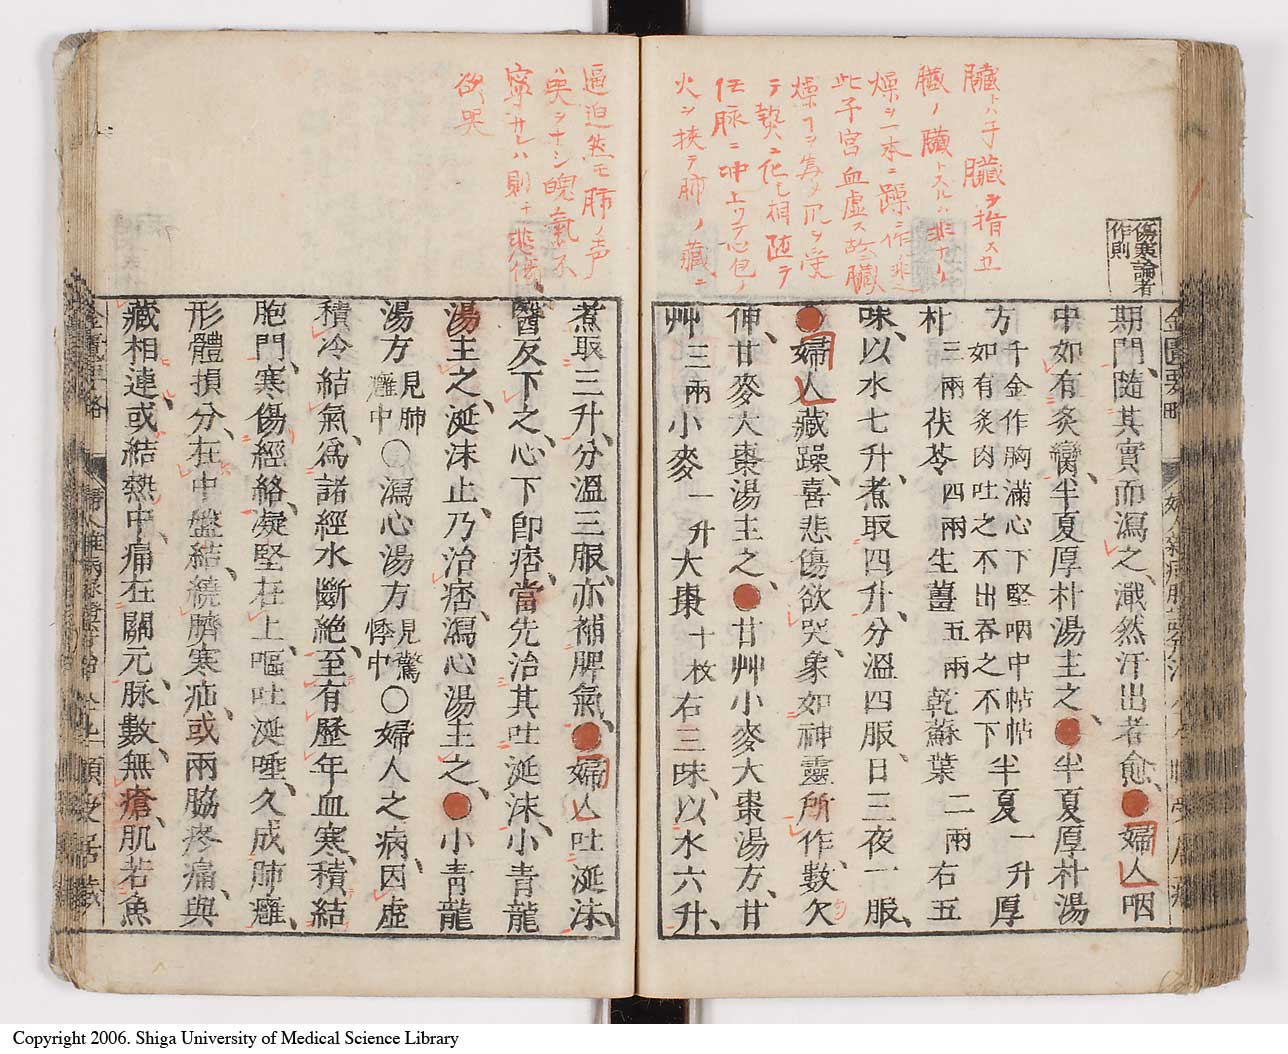 臓トハ子臓ヲ指ス五
臓ノ臓トスルハ非ナリ
燥ヲ一本ニ躁ニ作ル非
此子宮血虚ス故臓
テ熱ニ化シ相随テ
任脉ニ冲上シテ心包ノ
火ヲ挾テ肺ノ藏ニ
傷寒論者
作則
期門、隨其實而瀉之、濈然汗出者愈、●婦人咽
中如有炙臠、半夏厚朴湯主之、●半夏厚朴湯
方 千金作胸滿心下堅咽中帖帖 如有炙肉吐之不出吞之不下 半夏一升厚
朴三兩茯苓四兩生薑五兩乾蘇葉二兩右五
味、以水七升、煮取四升、分溫四服、日三夜一服、
●婦人藏躁、喜悲傷欲哭、象如神靈所作、數欠
伸、甘麥大棗湯主之、●甘艸小麥大棗湯方、甘
艸三兩小麥一升大棗十枚右三味、以水六升、
逼迫然モ肺ノ声
ハ哭ヲナシ魄氣不
寧サレハ則チ悲傷
欲哭
煮取三升、分溫三服、亦補脾氣、●婦人吐涎沫、
醫反下之、心下卽痞、當先治其吐涎沫、小青龍
湯主之、涎沫止、乃治痞、瀉心湯主之、●小青龍
湯方見肺癰中○瀉心湯方見驚悸中○婦人之病、因虛
積冷結氣、爲諸經水斷絕、至有歷年血寒、積結
胞門、寒傷經絡、凝堅在上、嘔吐涎唾、久成肺癰、
形體損分、在中盤結、繞臍寒疝、或兩脇疼痛、與
藏相連、或結熱中、痛在關元、脉數、無瘡、肌若魚